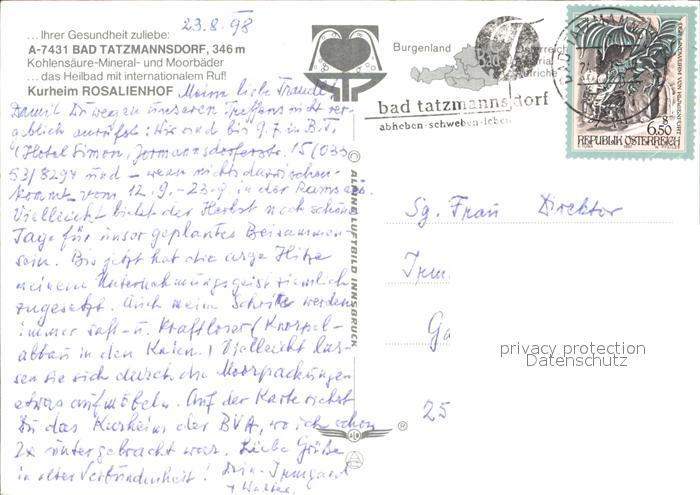 23.8.98
... Ihrer Gesundheit zuliebe:
A-7431 BAD TATZMANNSDORF, 346 m
Kohlensäure-Mineral- und Moorbäder
... das Heilbad mit internationalem Ruf!
Kurheim ROSALIENHOF
Meine liebe Traude!
Damit Du wegen unseres Treffens nicht ver-
geblich anrufst: Wir sind bis 9.9. in B.T.
(Hotel Simon, Jormannsdorferstr. 15 (033
53/8294 und – wenn nichts dazwischen-
kommt vom 12.9.-23.9 in der Ramsau.
Vielleicht bietet der Herbst noch schöne
Tage für unser geplantes Beisammen-
sein. Bis jetzt hat die arge Hitze
meinem Unternehmungsgeist ziemlich
zugesetzt. Auch meine Schritte werden
immer saft- u. kraftloser (Knorpel-
abbau in den Knien.) Vielleicht las-
sen sie sich durch die Moorpackungen
etwas aufmöbeln. Auf der Karte siehst
Du das Kurheim der BVA, wo ich schon
2x untergebracht war. Liebe Grüße
in alter Verbundenheit! Dein Irmgard
+ Walter.
© ALPINE LUFTBILD INNSBRUCK
Burgenland
bad tatzmannsdorf
abheben-schweben-leben
8
6.50
REPUBLIK ÖSTERREICH
Sg. Frau Direktor
Irm
Ga
25
privacy protection
Datenschutz